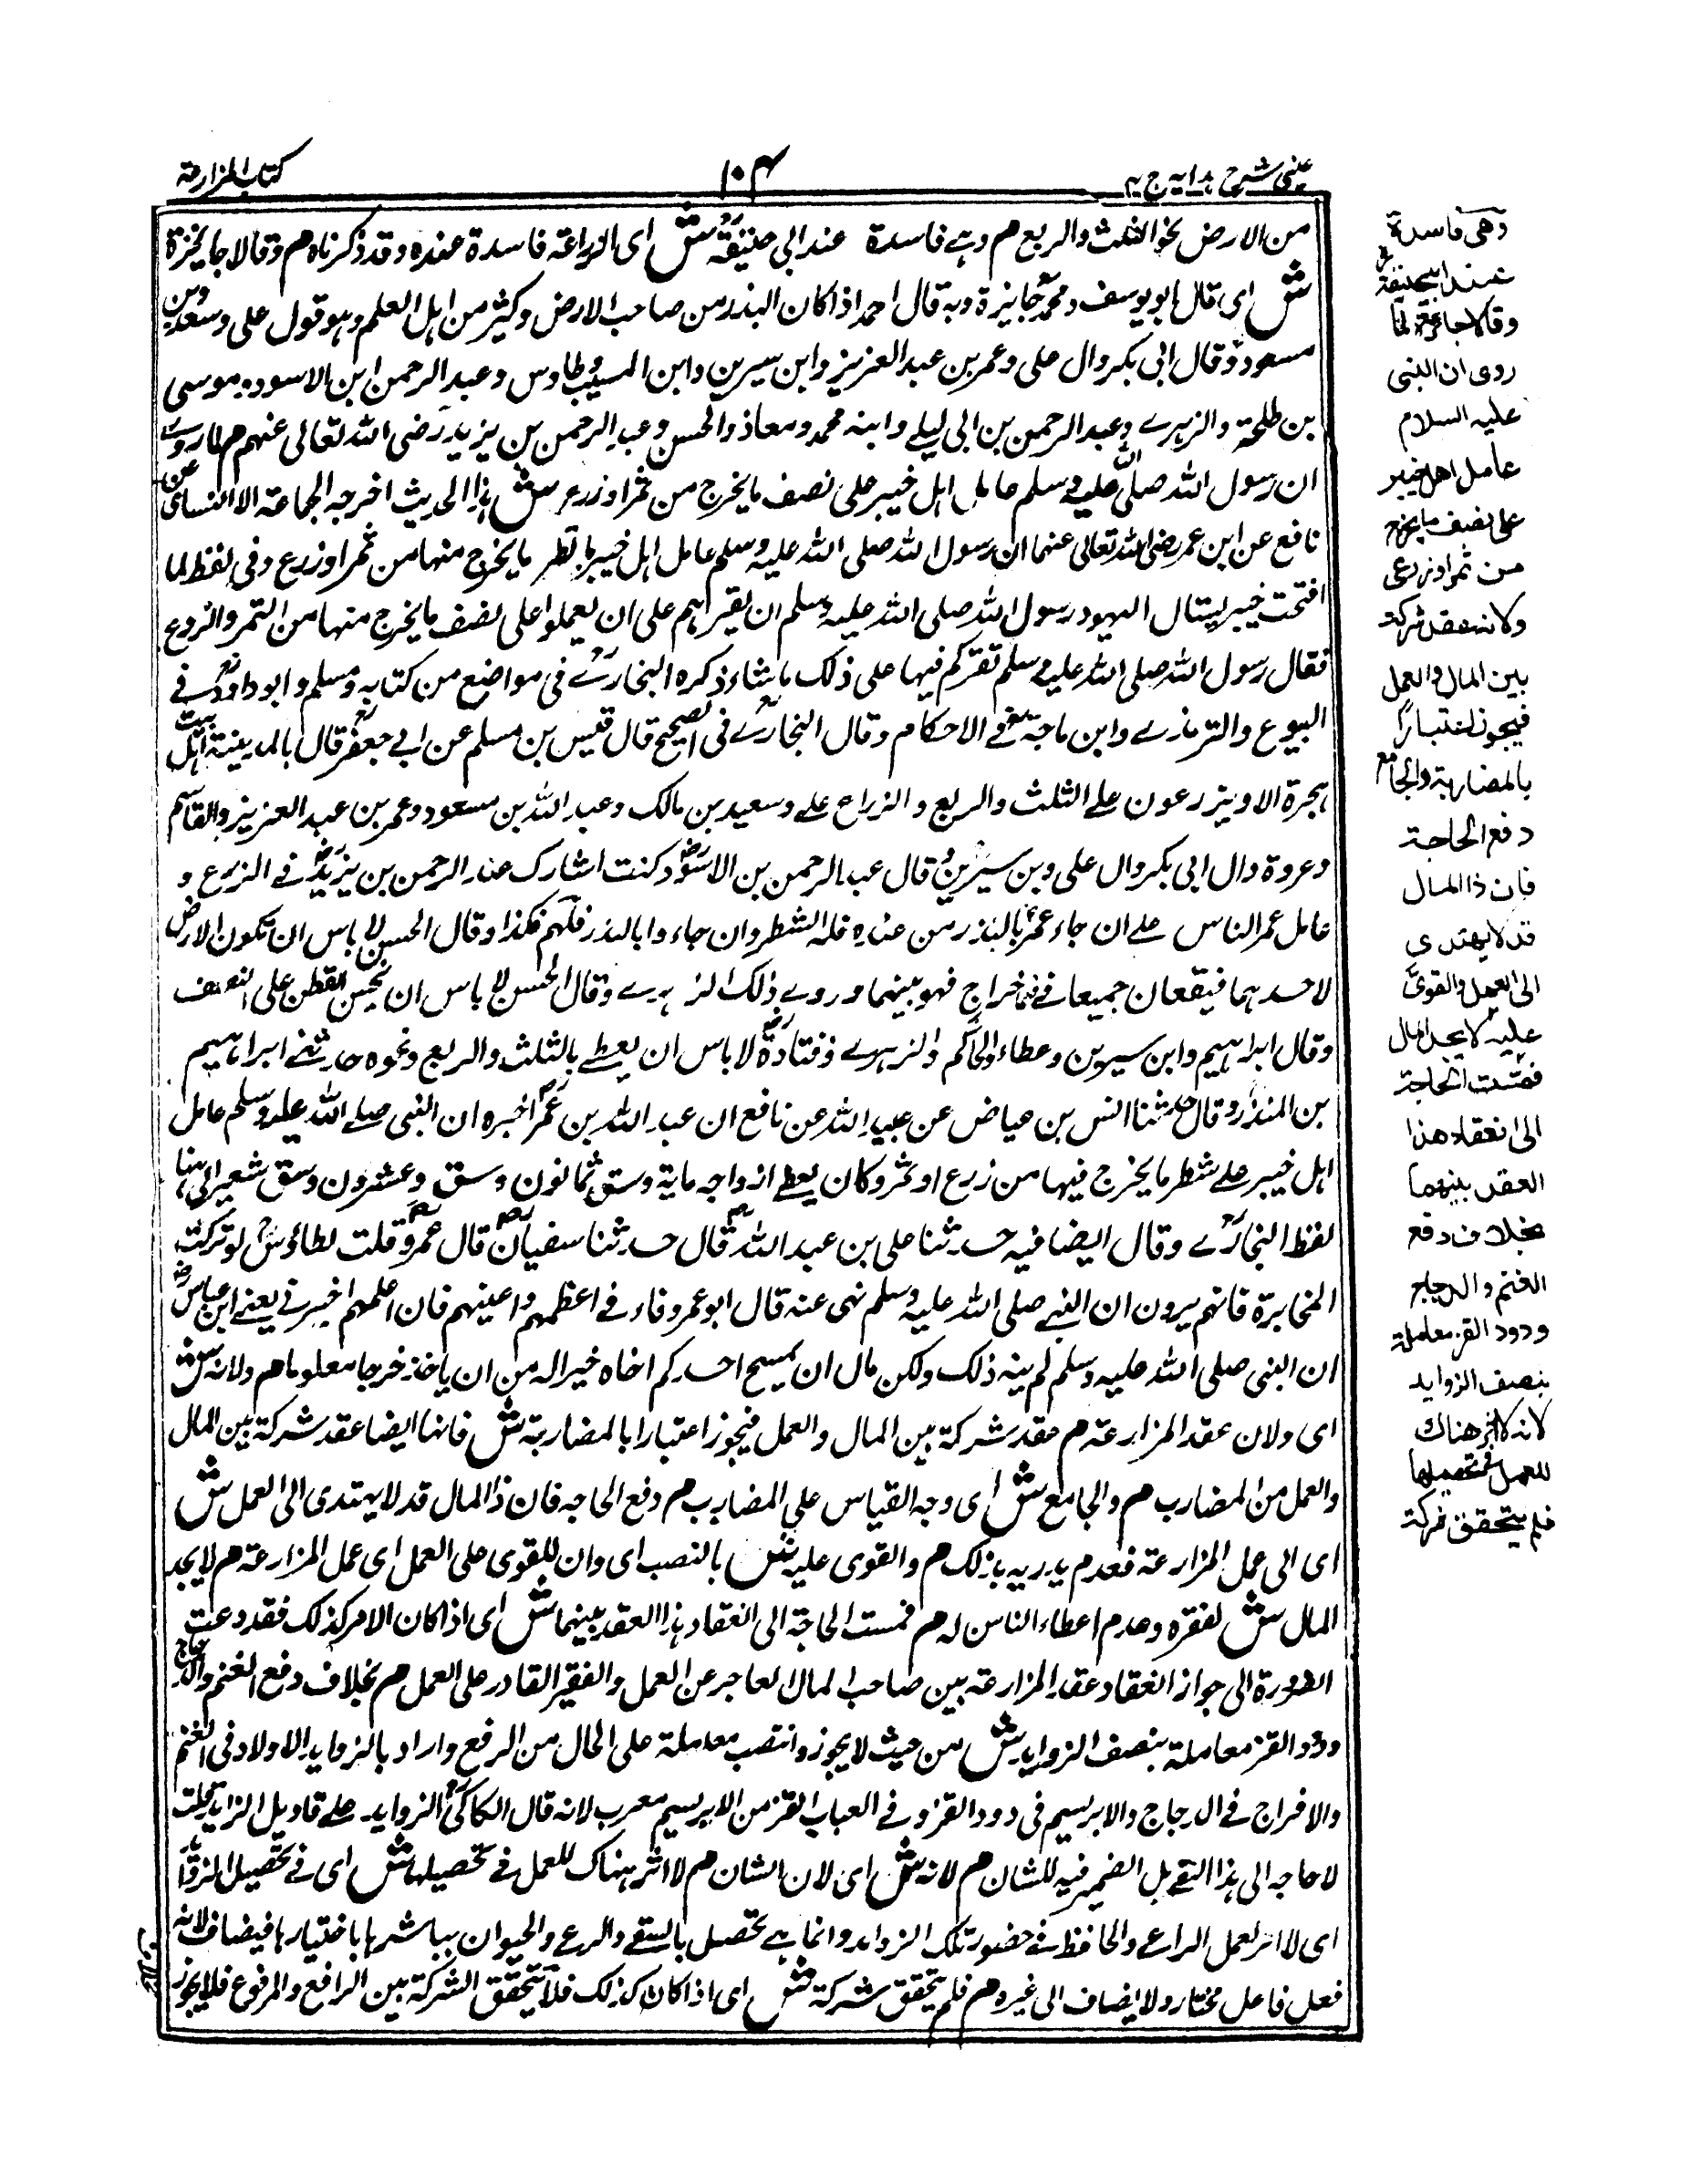 عینی شرح ہدایہ ج ۴
۱۰۴
كتاب المزارعة
من الارض نحو الثلث والربع م وہے فاسدة عند ابی حنیفة ش ای المزارعة فاسدة عنده وقد ذکرناه م وقالا جایزة
ش ای قال ابو یوسف ومحمد جایزة وبه قال احمد اذا کان البذر من صاحب الارض وکثیر من اہل العلم وہو قول علی وسعد وبن
مسعود وقال ابی بکر وال علی وعمر بن عبد العزیز وابن سیرین وابن المسیب وطاوس وعبد الرحمن ابن الاسود وموسی
بن طلحة والزہرے وعبد الرحمن بن ابی لیلے وابنه محمد ومعاذ والحسن وعبد الرحمن بن یزید رضی الله تعالی عنہم م لما روے
ان رسول الله صلی الله علیه وسلم عامل اہل خیبر علی نصف ما یخرج من ثمر او زرع ش ہذا الحدیث اخرجه الجماعة الا النسائی عن
نافع عن ابن عمر رضی الله تعالی عنہما ان رسول الله صلی الله علیه وسلم عامل اہل خیبر بشطر ما یخرج منہا من ثمر او زرع وفی لفظ لما
افتتحت خیبر سال الیہود رسول الله صلی الله علیه وسلم ان یقرہم علی ان یعملوا علی نصف ما یخرج منہا من التمر والزرع
فقال رسول الله صلی الله علیه وسلم نقرکم فیہا علی ذلک ما شاء ذکره البخارے فی مواضع من کتابه ومسلم وابو داود فے
البیوع والترمذے وابن ماجة فے الاحکام وقال البخارے فی الصحیح قال قیس بن مسلم عن ابے جعفر قال ما بالمدینة اہل بیت
ہجرة الا ویزرعون علے الثلث والربع والزراع علے وسعید بن مالک وعبد الله بن مسعود وعمر بن عبد العزیز والقاسم
وعروة وال ابی بکر وال علی وبن سیرین قال عبد الرحمن بن الاسود کنت اشارک عبد الرحمن بن یزید فے الزرع و
عامل عمر الناس علے ان جاء عمر بالبذر من عنده فله الشطر وان جاءوا بالبذر فلہم کذا وقال الحسن لا باس ان تکون الارض
لاحدہما فینفقان جمیعا فما خراج فہو بینہما وروے ذلک الزہرے وقال الحسن لا باس ان یجنی القطن علی النصف
وقال ابراہیم وابن سیرین وعطاء والحکم والزہرے وقتادة لا باس ان یعطے بالثلث والربع ونحوه حدثنے ابراہیم
بن المنذر وقال حدثنا انس بن عیاض عن عبید الله عن نافع ان عبد الله بن عمر اخبره ان النبی صلے الله علیه وسلم عامل
اہل خیبر علے شطر ما یخرج فیہا من زرع او ثمر وکان یعطے ازواجه مایة وسق ثمانون وسق وعشرون وسق شعیر الی ہنا
لفظ البخارے وقال ایضا فیه حدثنا علی بن عبد الله قال حدثنا سفیان قال عمرو قلت لطاؤس لو ترکت
المخابرة فانہم یرون ان النبے صلی الله علیه وسلم نہی عنه قال ابو عمرو فاء فے اعطہم واعینہم فان اعلمہم اخبرنے یعنے ابن عباس
ان النبی صلی الله علیه وسلم لم ینه ذلک ولکن قال ان یمنح احدکم اخاه خیر اله من ان یاخذ خرجا معلوما م ولانه ش
ای ولان عقد المزارعة م عقد شرکة بین المال والعمل فیجوز اعتبارا بالمضاربة ش فانہا ایضا عقد شرکة بین المال
والعمل من المضارب م والجامع ش ای وجه القیاس علی المضارب م دفع الحاجه فان ذا المال قد لا یہتدی الی العمل ش
ای الی عمل المزارعة فعدم یدریه بذلک م والقوی علیه ش بالنصب ای وان للقوی علی العمل ای عمل المزارعة م لا یجد
المال ش لفقره وعدم اعطاء الناس له م فمست الحاجة الی انعقاد ہذا العقد بینہما ش ای اذا کان الامر کذلک فقد دعت
الضرورة الی جواز انعقاد عقد المزارعة بین صاحب المال العاجز عن العمل والفقیر القادر علی العمل م بخلاف دفع الغنم والدجاج
ودود القز معاملة بنصف الزواید ش من حیث لا یجوز وانتصب معاملة علی الحال من الرفع واراد بالزواید الاولاد فی الغنم
والافراج فے الدجاج والابریسم فی دود القز وفے العباب القز من الابریسم معرب لانه قال الکاکی الزواید علے تاویل الزاید قلت
لا حاجه الی ہذا التقے بل الضمیر فیه للشان م لانه ش ای لان الشان م لا اثر ہناک للعمل فے تحصیلہا ش ای فے تحصیل الزواید
ای لا اثر لعمل الراعے والحافظ فے حضور تلک الزواید وانما ہے تحصل بالسقے والرعے والحیوان یباشرہا باختیارہا فیضاف لانه
فعل فاعل مختار ولا یضاف الی غیره م فلم یتحقق شرکة ش ای اذا کان کذلک فلا یتحقق الشرکة بین الرافع والمرفوع فلا یجوز
وهی فاسدة
عند ابیحنیفة
وقالا جائزة لما
روی ان النبی
علیه السلام
عامل اهل خیبر
علی نصف ما یخرج
من ثمر او زرع
ولانه عقد شرکة
بین المال والعمل
فیجوز اعتبارا
بالمضاربة والجامع
دفع الحاجة
فان ذا المال
قد لا یهتدی
الی العمل والقوی
علیه لا یجد المال
فمست الحاجة
الی انعقاد هذا
العقد بینهما
بخلاف دفع
الغنم والدجاج
ودود القز معاملة
بنصف الزواید
لانه لا اثر هناک
للعمل فی تحصیلها
فلم یتحقق شرکة